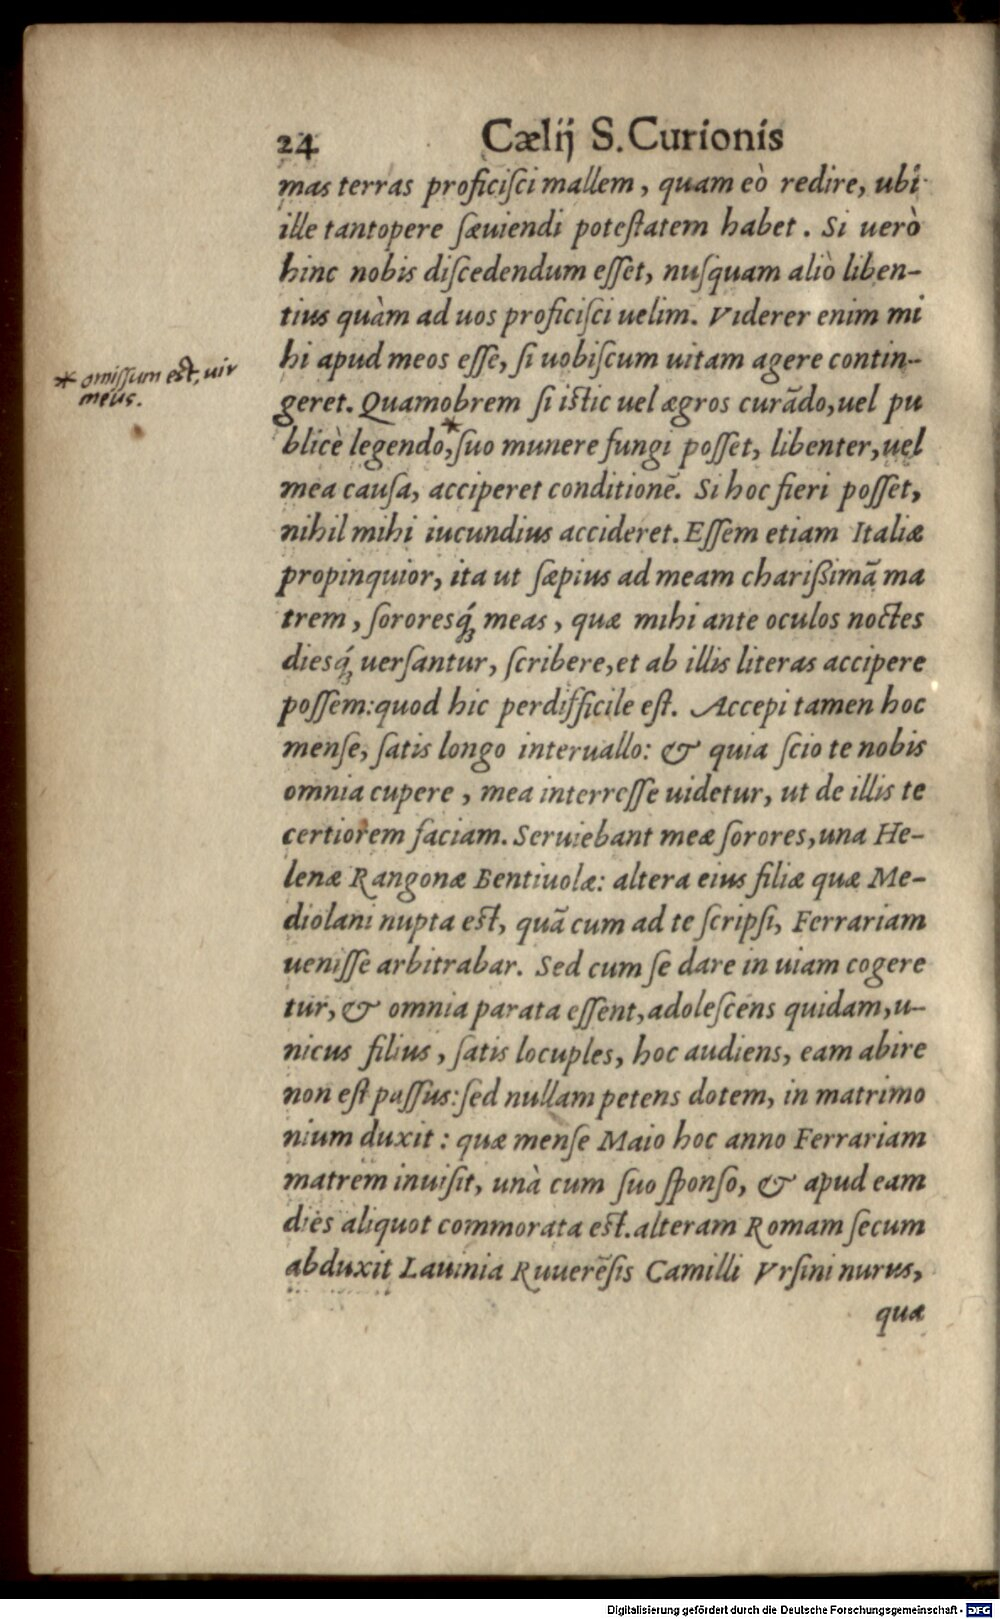 24 Cælij S. Curionis
mas terras proficiſci mallem, quam eò redire, ubi
ille tantopere ſæuiendi poteſtatem habet. Si uerò
hinc nobis diſcedendum eſſet, nuſquam aliò liben-
tius quàm ad uos proficiſci uelim. Viderer enim mi
hi apud meos eſſe, ſi uobiſcum uitam agere contin-
* omiſſum est, uir
meus.
geret. Quamobrem ſi istic uel ægros curādo, uel pu
blicè legendo,* ſuo munere fungi poſſet, libenter, uel
mea cauſa, acciperet conditionē. Si hoc fieri poſſet,
nihil mihi iucundius accideret. Eſſem etiam Italiæ
propinquior, ita ut ſæpius ad meam charißimā ma
trem, ſororesq́; meas, quæ mihi ante oculos noctes
diesq́; uerſantur, ſcribere, et ab illis literas accipere
poſſem: quod hic perdifficile eſt. Accepi tamen hoc
menſe, ſatis longo interuallo: & quia ſcio te nobis
omnia cupere, mea interreſſe uidetur, ut de illis te
certiorem faciam. Seruiebant meæ ſorores, una He-
lenæ Rangonæ Bentiuolæ: altera eius filiæ quæ Me-
diolani nupta est, quā cum ad te ſcripſi, Ferrariam
ueniſſe arbitrabar. Sed cum ſe dare in uiam cogere
tur, & omnia parata eſſent, adoleſcens quidam, u-
nicus filius, ſatis locuples, hoc audiens, eam abire
non eſt paſſus: ſed nullam petens dotem, in matrimo
nium duxit: quæ menſe Maio hoc anno Ferrariam
matrem inuiſit, unà cum ſuo ſponſo, & apud eam
dies aliquot commorata est. alteram Romam ſecum
abduxit Lauinia Ruuerēſis Camilli Vrſini nurus,
quæ
Digitalisierung gefördert durch die Deutsche Forschungsgemeinschaft - DFG